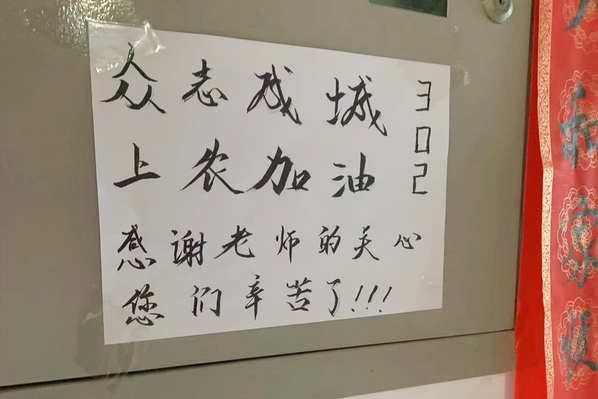 众志成城
上农加油
302
感谢老师的关心
您们辛苦了!!!
和家顺